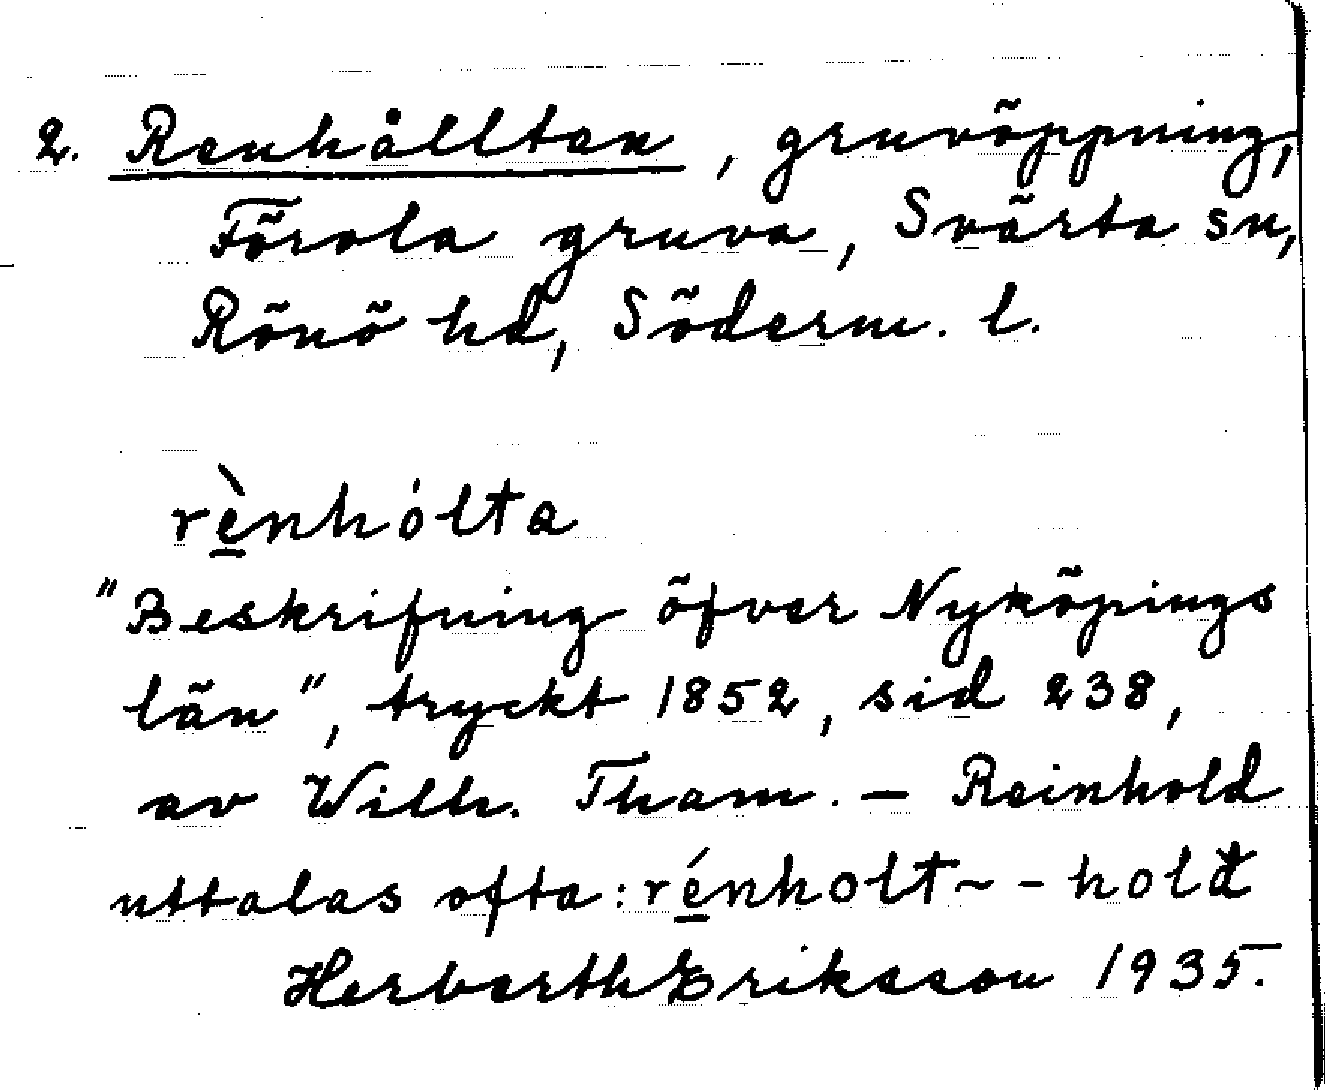 2. Renhålltan, gruvöppning,
Förola gruva, Svärta sn,
Rönö hd, Söderm. l.
rè̱nhólta
"Beskrifning öfver Nyköpings
län", tryckt 1852, sid 238,
av Wilh. Tham. — Reinhold
uttalas ofta: ré̱nholt ~ -hold
Herberth Eriksson 1935.